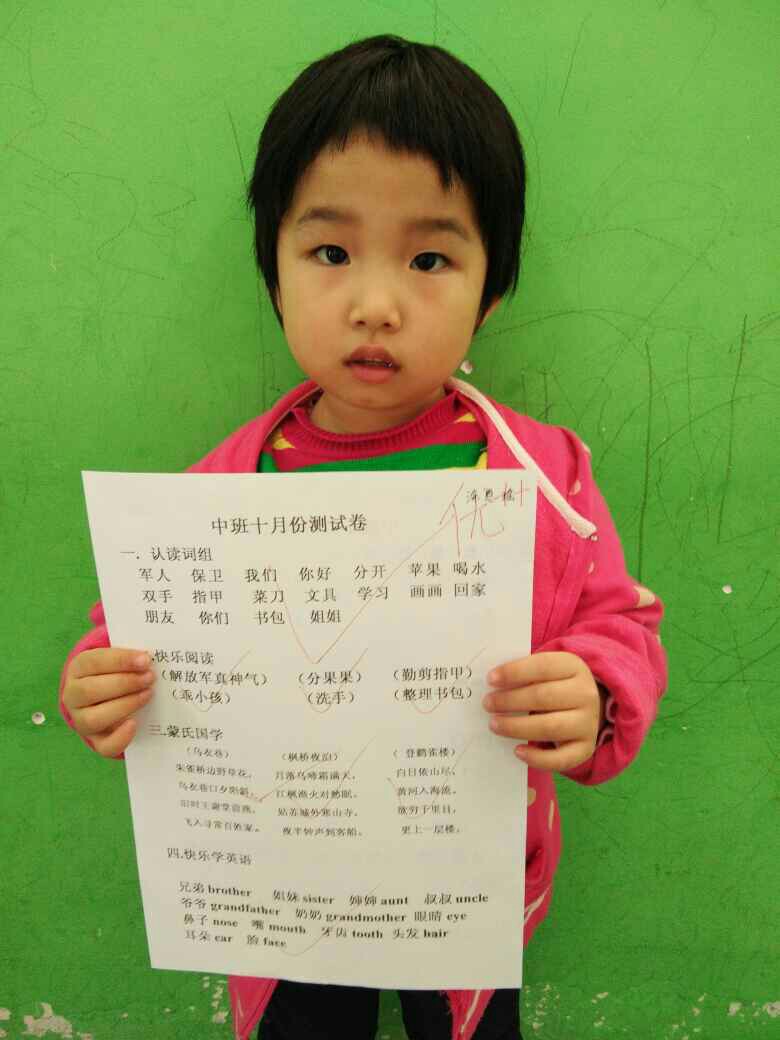 优++
中班十月份测试卷
一．认读词组
军人 保卫 我们 你好 分开 苹果 喝水
双手 指甲 菜刀 文具 学习 画画 回家
朋友 你们 书包 姐姐
.快乐阅读
（解放军真神气） （分果果） （勤剪指甲）
（乖小孩） （洗手） （整理书包）
三.蒙氏国学
（乌衣巷） （枫桥夜泊） （登鹳雀楼）
朱雀桥边野草花， 月落乌啼霜满天， 白日依山尽，
乌衣巷口夕阳斜。 江枫渔火对愁眠。 黄河入海流。
旧时王谢堂前燕， 姑苏城外寒山寺， 欲穷千里目，
飞入寻常百姓家。 夜半钟声到客船。 更上一层楼。
四.快乐学英语
兄弟 brother 姐妹 sister 婶婶 aunt 叔叔 uncle
爷爷 grandfather 奶奶 grandmother 眼睛 eye
鼻子 nose 嘴 mouth 牙齿 tooth 头发 hair
耳朵 ear 脸 face